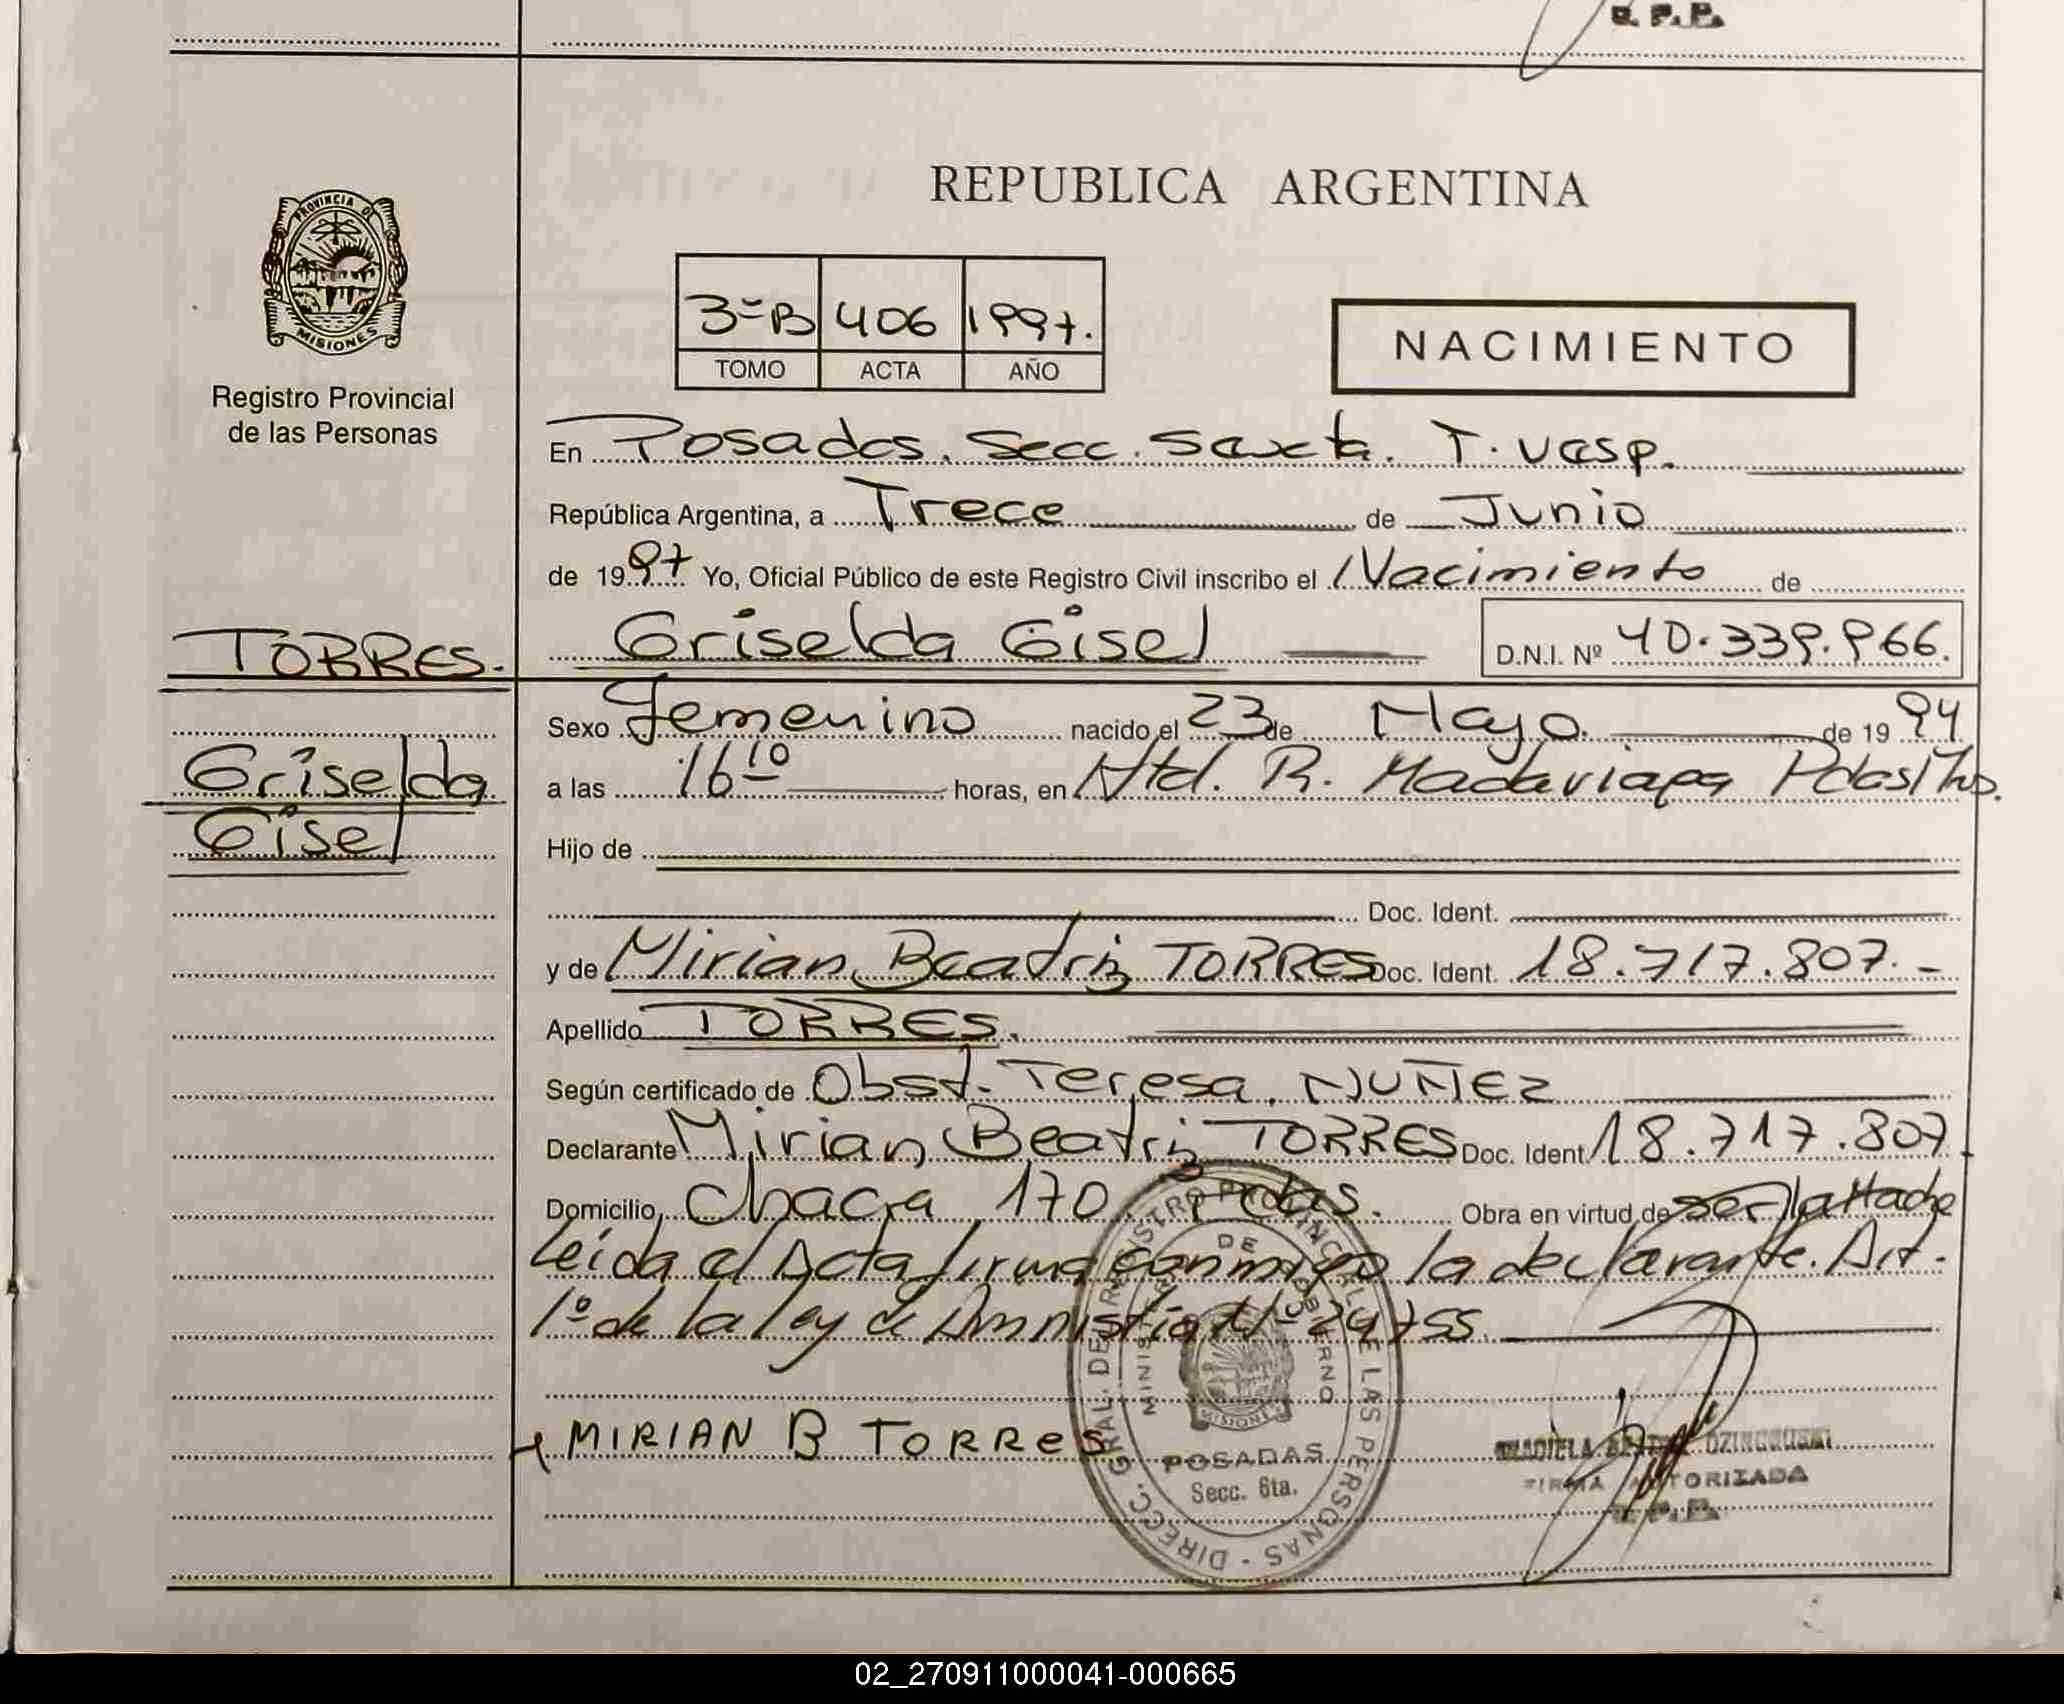 R. P. P.
PROVINCIA DE
MISIONES
Registro Provincial
de las Personas
REPUBLICA ARGENTINA
3º B 406 1997.
TOMO ACTA AÑO
NACIMIENTO
En Posadas. Secc. Sexta. T. Vesp.
República Argentina, a Trece de Junio
de 1997 Yo, Oficial Público de este Registro Civil inscribo el Nacimiento de
Griselda Gisel D.N.I. Nº 40.339.966.
TORRES.
Griselda
Gisel
Sexo Femenino nacido el 23 de Mayo de 1994
a las 16 10 horas, en Htal. R. Madariaga Pdas/Ms.
Hijo de
Doc. Ident.
y de Mirian Beatriz TORRES Doc. Ident. 18.717.807.-
Apellido TORRES.
Según certificado de Obst. Teresa NUÑEZ
Declarante Mirian Beatriz TORRES Doc. Ident. 18.717.807.
Domicilio Chacra 170 Pdas. Obra en virtud de ser la Madre
Leída el Acta firma conmigo la declarante. Art.
1º de la ley de Amnistía Nº 24755
MIRIAN B TORRes
DIRECC. GRAL. DEL REGISTRO PROVINCIAL DE LAS PERSONAS
MINISTERIO DE GOBIERNO
MISIONES
POSADAS
Secc. 6ta.
GRACIELA
FIRMA AUTORIZADA
R. P. P.
02_270911000041-000665